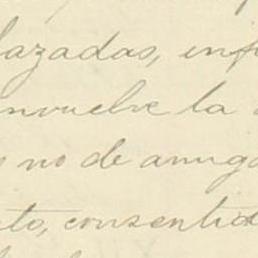 lazadas, inf
nvuelve la
no de amiga
to, consentid